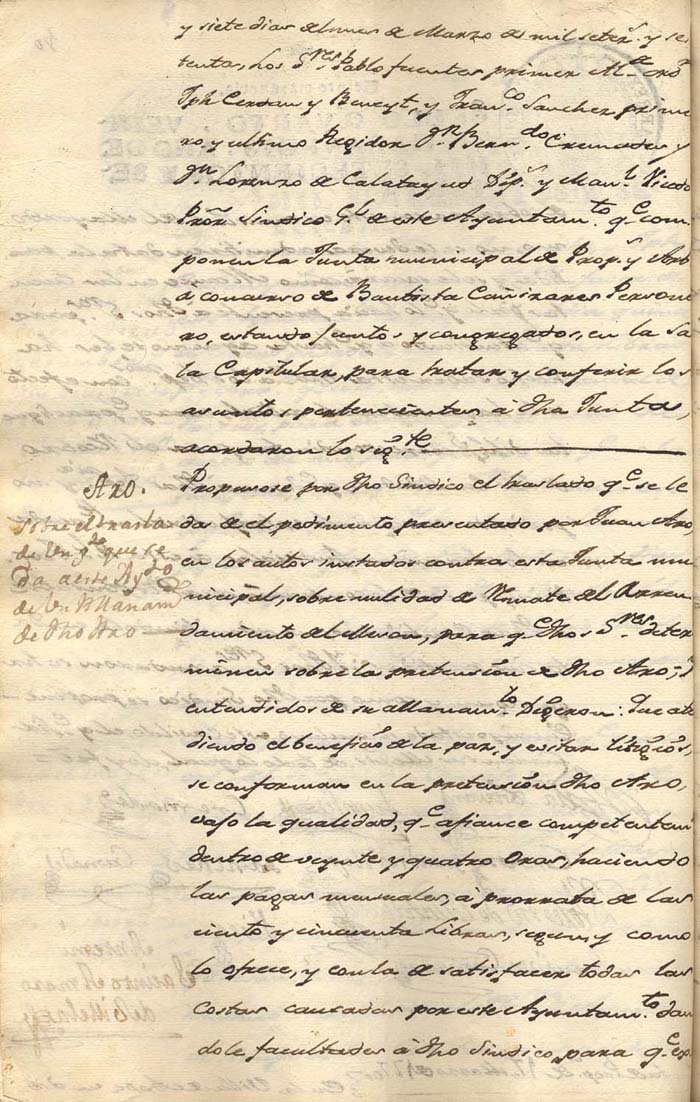 y siete dias del mes de Marzo de mil setec.s y se
tenta, Los S.res Pablo fuentes primer Al.de ord.o
Jph Cerdan y Beneyt, y Fran.co Sanchez prime
ro, y ultimo Regidor d.n Bern.do Cremades y
d.n Lorenzo de Calatayud Dip.s y Man.l Picado
Pror Sindico G.l de este Ayuntam.to q.e com
ponen la Junta municipal de Prop.s y Arb
a concurso de Bautista Cañizares Persone
ro, estando juntos y congregados, en la Sa
la Capitular, para tratar y conferir los
asuntos pertenecientes à dha Junta,
acordaron lo sig.te
Aro.
sobre el trasla
do de un p.to que se
da a este Ay.to
de un Allanam.to
de dho Aro
Propusose por dho Sindico el traslado q.e se le
da de el pedimento presentado por Juan Aro,
en los autos instados contra esta Junta mu
nicipal, sobre nulidad de Remate del Arren
damiento del Meson, para q.e dhos S.res deter
minen sobre la pretension de dho Aro, y
entendidos de su allanam.to Digeron: Que ate
diendo el beneficio de la paz, y evitar litigios,
se conforman en la pretension dho Aro,
vajo la qualidad, q.e afiance competentem
dentro de veynte y quatro Oras, haciendo
las pagas mensuales, à prorrata de las
ciento y cincuenta Libras, segun, y como
lo ofrece, y con la de satisfacer todas las
costas causadas por este Ayuntam.to dan
dole facultades à dho Sindico, para q.e ex